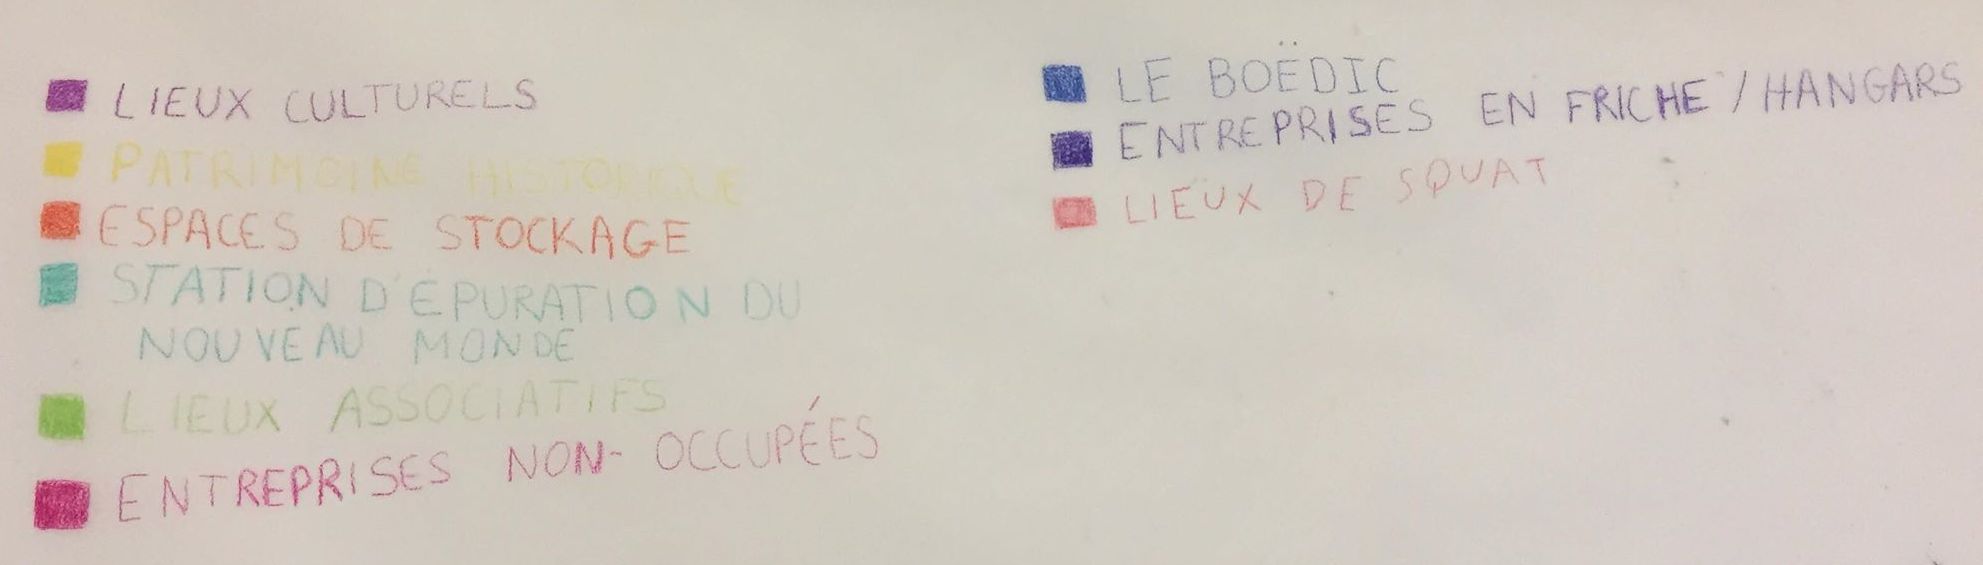 LIEUX CULTURELS
PATRIMOINE HISTORIQUE
ESPACES DE STOCKAGE
STATION D'ÉPURATION DU
NOUVEAU MONDE
LIEUX ASSOCIATIFS
ENTREPRISES NON-OCCUPÉES
LE BOËDIC
ENTREPRISES EN FRICHE / HANGARS
LIEUX DE SQUAT